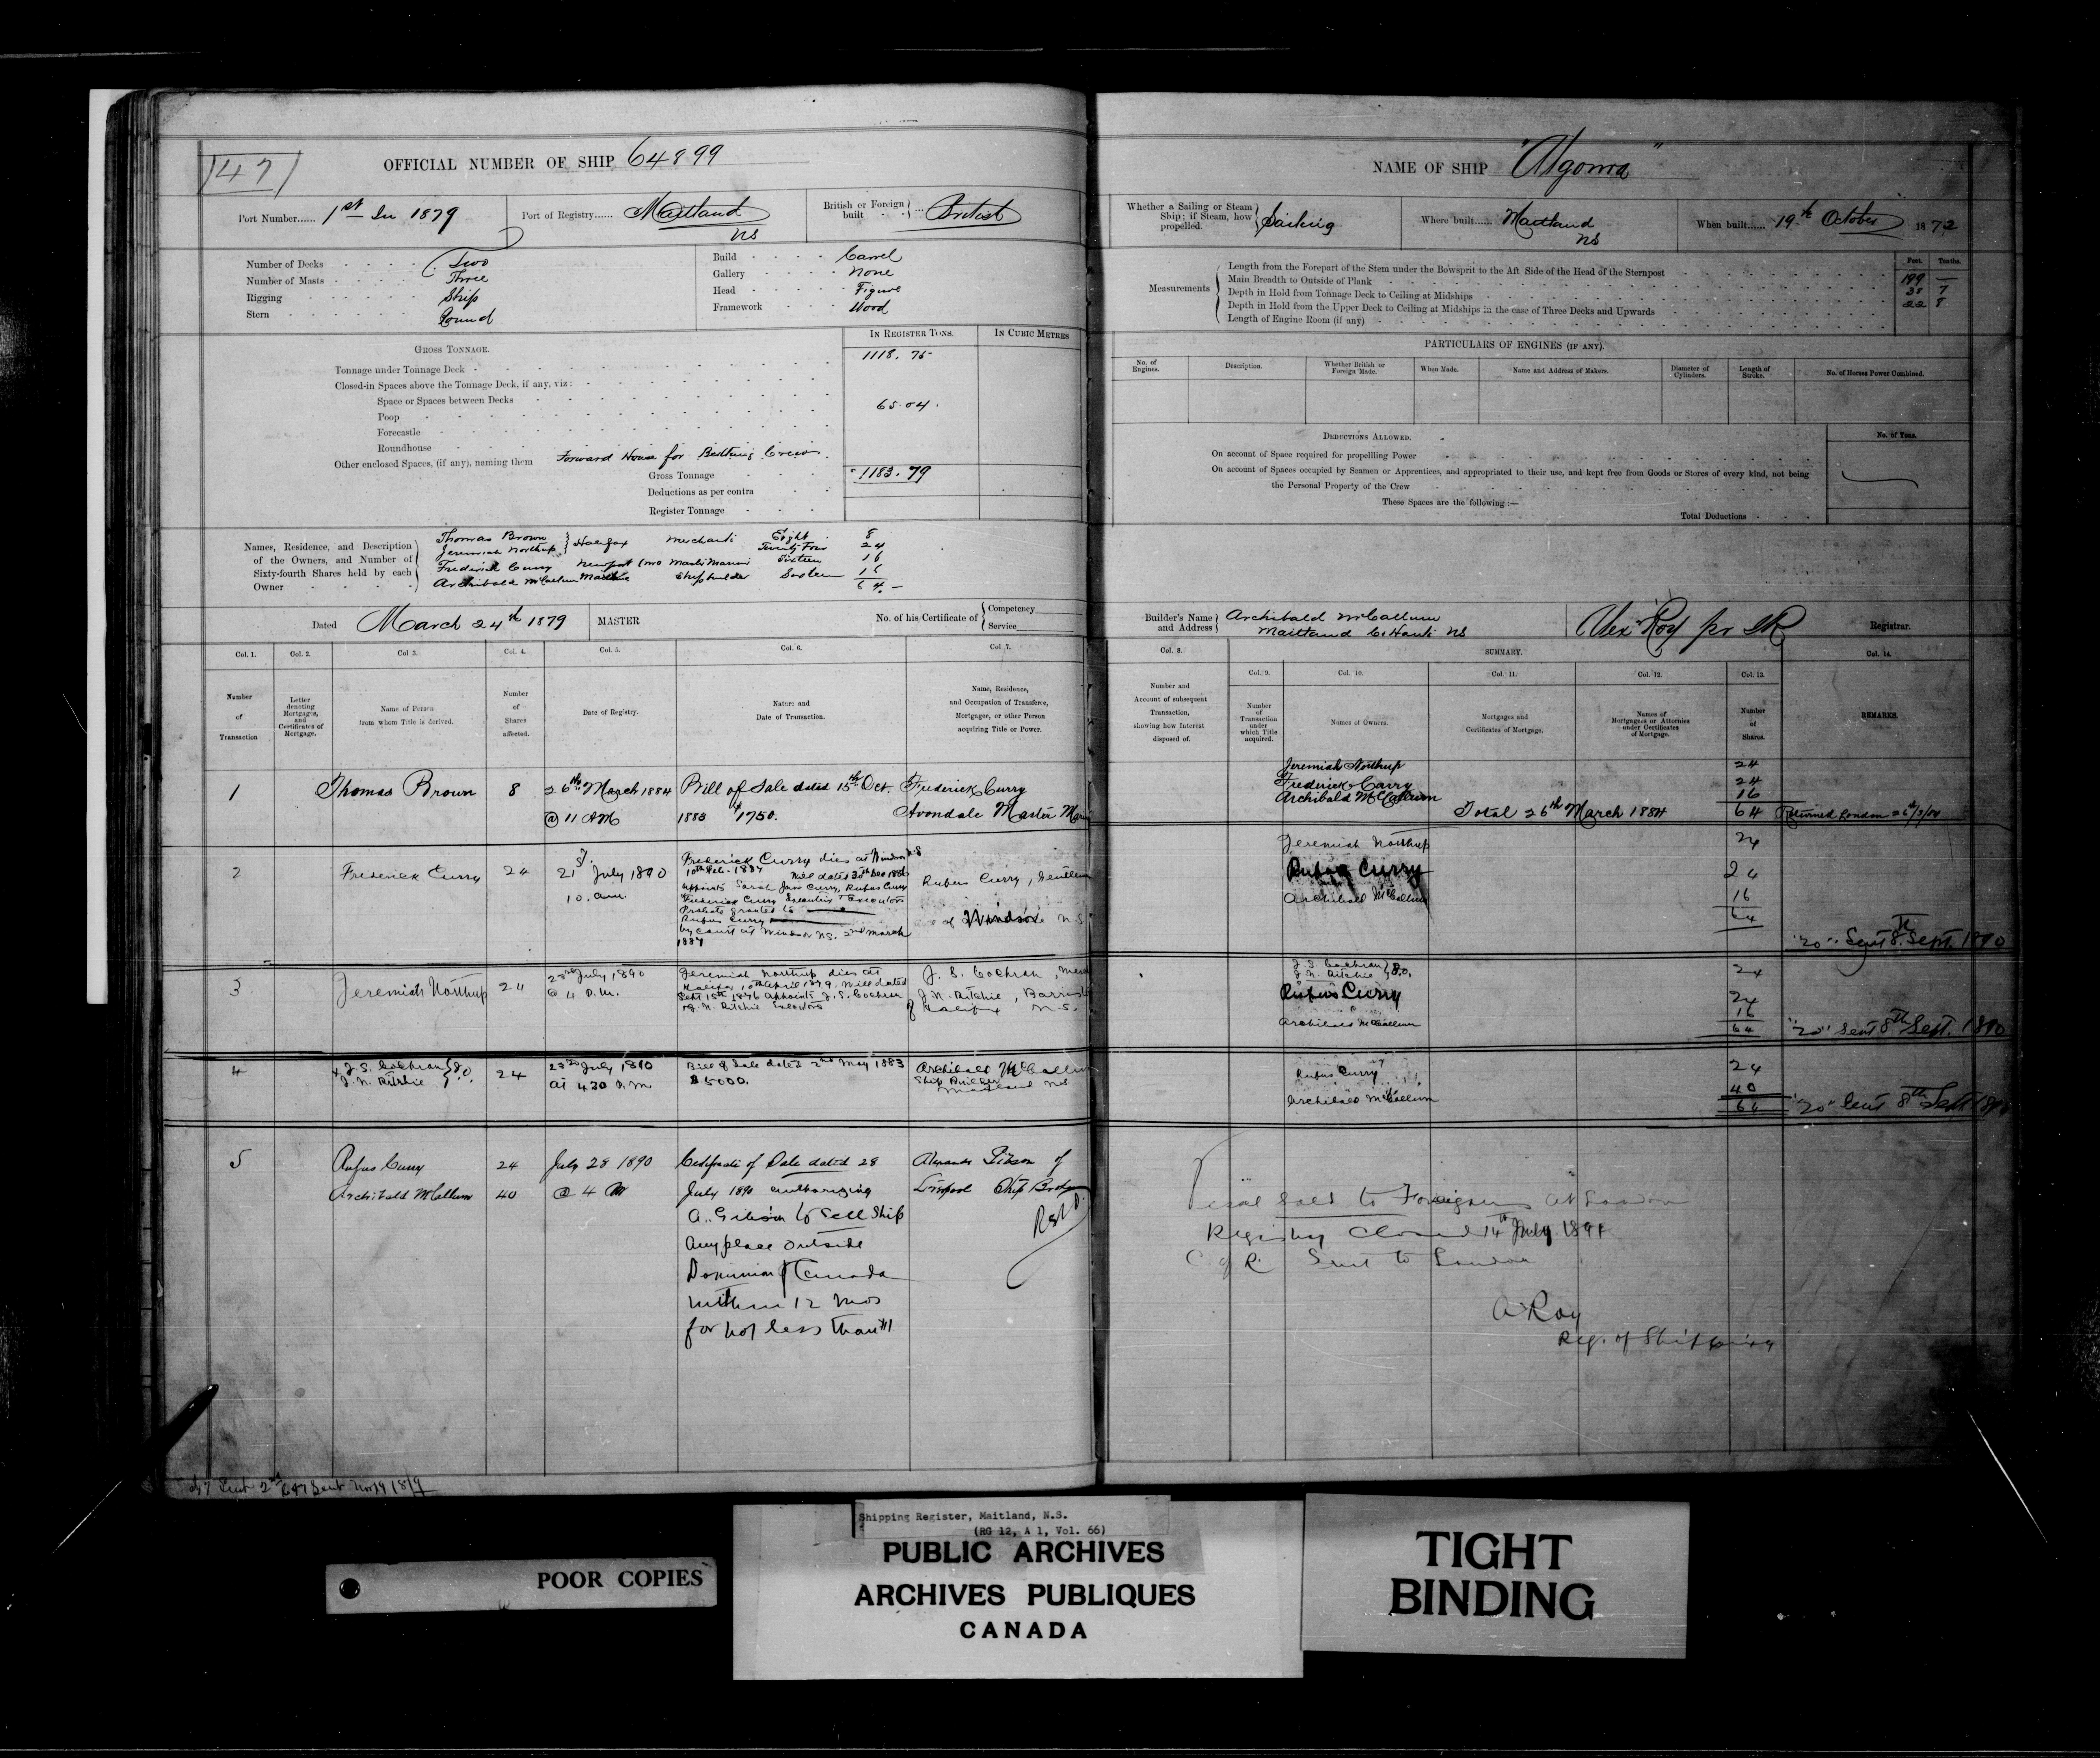 147
OFFICIAL NUMBER OF SHIP 64899
Port Number...... 1st In 1879
Port of Registry...... Maitland NS
British or Foreign built British
Number of Decks Two
Number of Masts Three
Rigging Ship
Stern Round
Build Carvel
Gallery None
Head Figure
Framework Wood
GROSS TONNAGE.
IN REGISTER TONS.
IN CUBIC METRES
Tonnage under Tonnage Deck 1118.75
Closed-in Spaces above the Tonnage Deck, if any, viz:
Space or Spaces between Decks
Poop 65.04
Forecastle
Roundhouse
Other enclosed Spaces, (if any), naming them Forward House for Berthing Crew
Gross Tonnage 1183.79
Deductions as per contra
Register Tonnage
Names, Residence, and Description of the Owners, and Number of Sixty-fourth Shares held by each Owner
Thomas Brown } Halifax Merchants Eight 8
Jeremiah Northup Twenty Four 24
Frederick Curry Newport Master Mariner Sixteen 16
Archibald McCallum Maitland Shipbuilder Sixteen 16
64
Dated March 24th 1879
MASTER
No. of his Certificate of { Competency
Service
Col. 1. Col. 2. Col 3. Col. 4. Col. 5. Col. 6. Col. 7.
Number of Transaction
Letter denoting Mortgages, and Certificates of Mortgage.
Name of Person from whom Title is derived.
Number of Shares affected.
Date of Registry.
Nature and Date of Transaction.
Name, Residence, and Occupation of Transferee, Mortgagee, or other Person acquiring Title or Power.
1 Thomas Brown 8 26th March 1884 Bill of Sale dated 15th Oct. Frederick Curry
@ 11 AM 1883 $1750. Avondale Master Mari
2 Frederick Curry 24 21st July 1890
10. a.m.
Frederick Curry dies at Windsor N.S
10th Feb. 1887 Will dated 30th Dec 1886
appoints Sarah Jane Curry, Rufus Curry
Frederick Curry Executrix & Executors
Probate granted to
Rufus Curry
by Court at Windsor NS. 2nd March
1887
Rufus Curry, Gentlem
of Windsor N.S
3 Jeremiah Northup 24 23rd July 1890
Jeremiah Northup dies at
Halifax, 10th April 1879. Will dated
Sept 15th 1876 appoints J. S. Cochran
J. N. Ritchie Executors
J. S. Cochran, Mer
J. N. Ritchie, Barrist
of Halifax N.S.
4 J. S. Cochran } J.O.
J. N. Ritchie
24 23rd July 1890
at 4.30 P.M.
Bill of Sale dated 2nd May 1883
$5000.
Archibald McCallum
Ship Builder
Maitland N.S.
5 Rufus Curry 24 July 28 1890 Certificate of Sale dated 28 Alexander Gibson of
Archibald McCallum 40 @ 4 PM July 1890 authorizing Liverpool Ship Broker
A. Gibson to Sell Ship
Any place outside
Dominion of Canada
within 12 mos
for not less than $1
NAME OF SHIP "Algoma"
Whether a Sailing or Steam Ship; if Steam, how propelled. Sailing
Where built...... Maitland NS
When built...... 19th October 1872
Measurements
Feet. Tenths.
Length from the Forepart of the Stem under the Bowsprit to the Aft Side of the Head of the Sternpost 199 —
Main Breadth to Outside of Plank 38 7
Depth in Hold from Tonnage Deck to Ceiling at Midships 22 8
Depth in Hold from the Upper Deck to Ceiling at Midships in the case of Three Decks and Upwards
Length of Engine Room (if any)
PARTICULARS OF ENGINES (IF ANY).
No. of Engines.
Description.
Whether British or Foreign Made.
When Made.
Name and Address of Makers.
Diameter of Cylinders.
Length of Stroke.
No. of Horses Power Combined.
DEDUCTIONS ALLOWED.
No. of Tons.
On account of Space required for propelling Power
On account of Spaces occupied by Seamen or Apprentices, and appropriated to their use, and kept free from Goods or Stores of every kind, not being
the Personal Property of the Crew
These Spaces are the following:—
Total Deductions
Builder's Name and Address } Archibald McCallum
Maitland Co Hants NS
Alex Roy Registrar.
Col. 8. SUMMARY. Col. 14.
Col. 9. Col. 10. Col. 11. Col. 12. Col. 13.
Number and Account of subsequent Transaction, showing how Interest disposed of.
Number of Transaction under which Title acquired.
Names of Owners.
Mortgages and Certificates of Mortgage.
Names of Mortgagees or Attornies under Certificates of Mortgage.
Number of Shares.
REMARKS.
Jeremiah Northup 24
Frederick Curry 24
Archibald McCallum 16
Total 26th March 1884 64 Returned London
Jeremiah Northup 24
Rufus Curry 24
Archibald McCallum 16
64
"20" Sent 8th Sept. 1890
J. S. Cochran } J.O.
J. N. Ritchie 24
Rufus Curry 24
Archibald McCallum 16
64 "20" Sent 8th Sept. 1890
Rufus Curry 24
Archibald McCallum 40
64 "20" Sent 8th Sept 1890
Vessel Sold to Foreigners at London
Registry Closed 14th July 1891
C of R. Sent to London
A Roy
Reg. of Shipping
Shipping Register, Maitland, N.S.
(RG 12, A 1, Vol. 66)
POOR COPIES
PUBLIC ARCHIVES
ARCHIVES PUBLIQUES
CANADA
TIGHT
BINDING